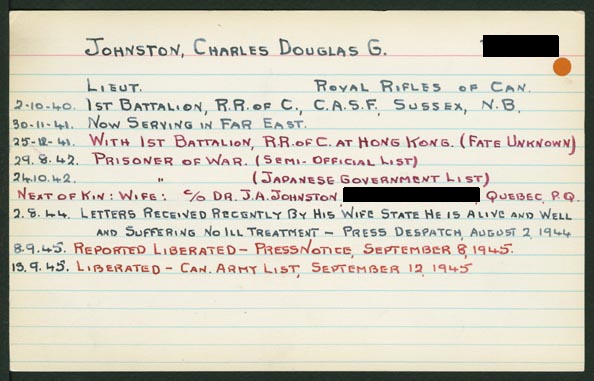 JOHNSTON, CHARLES DOUGLAS G.
LIEUT. ROYAL RIFLES OF CAN.
2-10-40. 1ST BATTALION, R.R. OF C., C.A.S.F. SUSSEX, N.B.
30-11-41. NOW SERVING IN FAR EAST.
25-12-41. WITH 1ST BATTALION, R.R. OF C. AT HONG KONG. (FATE UNKNOWN)
29.8.42. PRISONER OF WAR. (SEMI-OFFICIAL LIST)
24.10.42. " (JAPANESE GOVERNMENT LIST)
NEXT OF KIN: WIFE: C/O DR. J.A. JOHNSTON, QUEBEC, P.Q.
2.8.44. LETTERS RECEIVED RECENTLY BY HIS WIFE STATE HE IS ALIVE AND WELL
AND SUFFERING NO ILL TREATMENT – PRESS DESPATCH, AUGUST 2, 1944
8.9.45. REPORTED LIBERATED – PRESS NOTICE, SEPTEMBER 8, 1945.
13.9.45. LIBERATED – CAN. ARMY LIST, SEPTEMBER 12, 1945